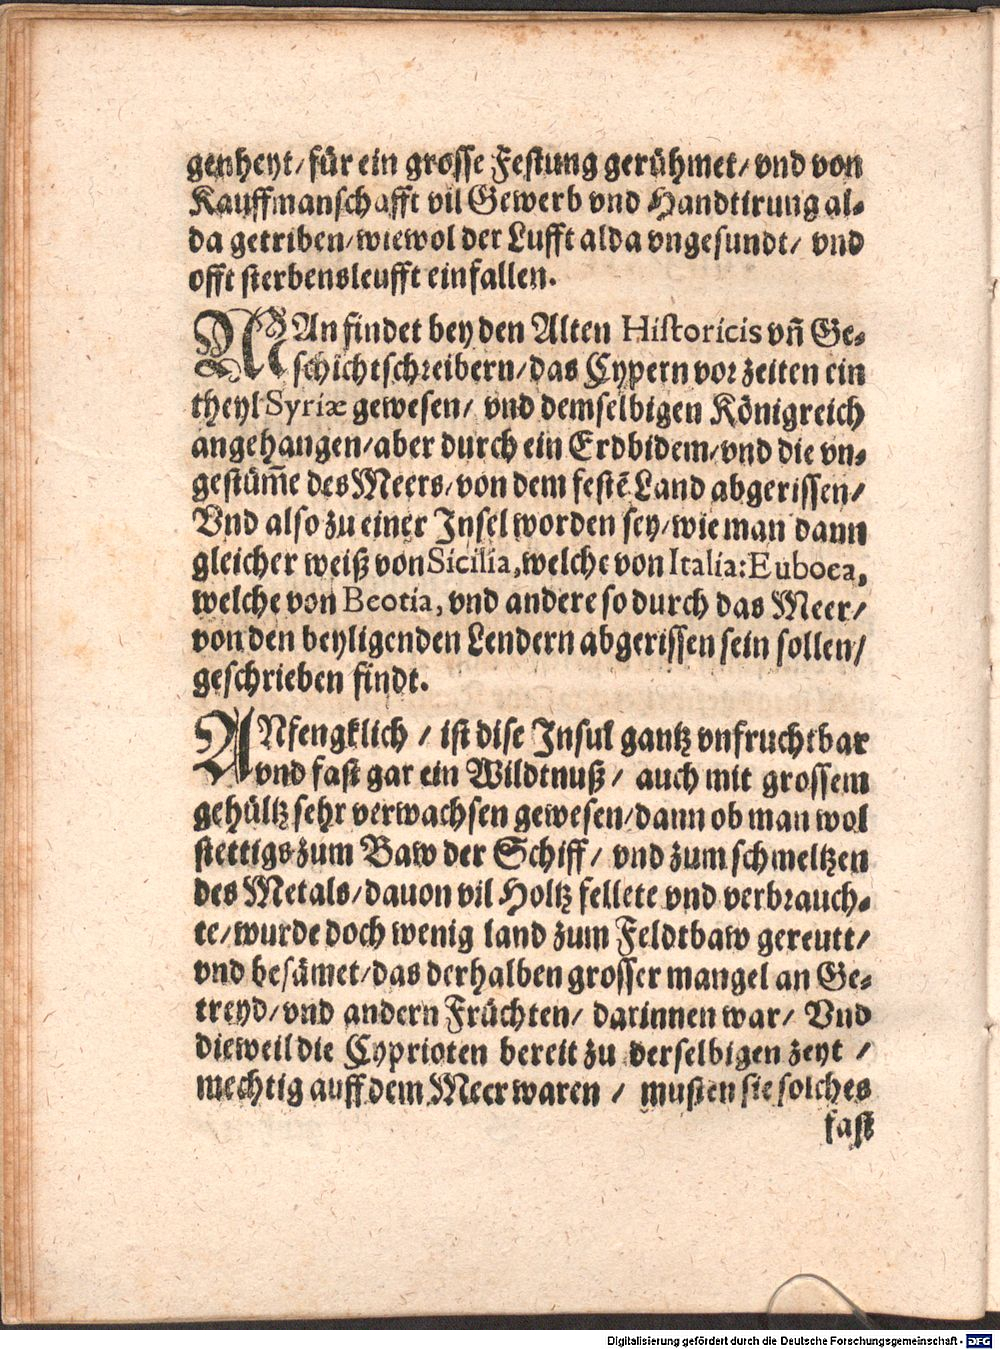 genheyt/ für ein grosse Festung gerühmet/ vnd von
Kauffmanschafft vil Gewerb vnd Handtirung al⸗
da getriben/ wiewol der Lufft alda vngesundt/ vnd
offt sterbensleufft einfallen.
MAn findet bey den Alten Historicis vñ Ge⸗
schichtschreibern/ das Cypern vor zeiten ein
theyl Syriæ gewesen/ vnd demselbigen Königreich
angehangen/ aber durch ein Erdbidem/ vnd die vn⸗
gestüm̃e des Meers/ von dem festẽ Land abgerissen/
Vnd also zu einer Insel worden sey/ wie man dann
gleicher weiß von Sicilia, welche von Italia: Euboea,
welche von Beotia, vnd andere so durch das Meer/
von den beyligenden Lendern abgerissen sein sollen/
geschrieben findt.
ANfengklich / ist dise Insul gantz vnfruchtbar
vnd fast gar ein Wildtnuß / auch mit grossem
gehültz sehr verwachsen gewesen/ dann ob man wol
stettigs zum Baw der Schiff / vnd zum schmeltzen
des Metals/ dauon vil Holtz fellete vnd verbrauch⸗
te/ wurde doch wenig land zum Feldtbaw gereutt/
vnd besämet/ das derhalben grosser mangel an Ge⸗
treyd/ vnd andern Früchten/ darinnen war/ Vnd
dieweil die Cyprioten bereit zu derselbigen zeyt /
mechtig auff dem Meer waren / musten sie solches
fast
Digitalisierung gefördert durch die Deutsche Forschungsgemeinschaft - DFG